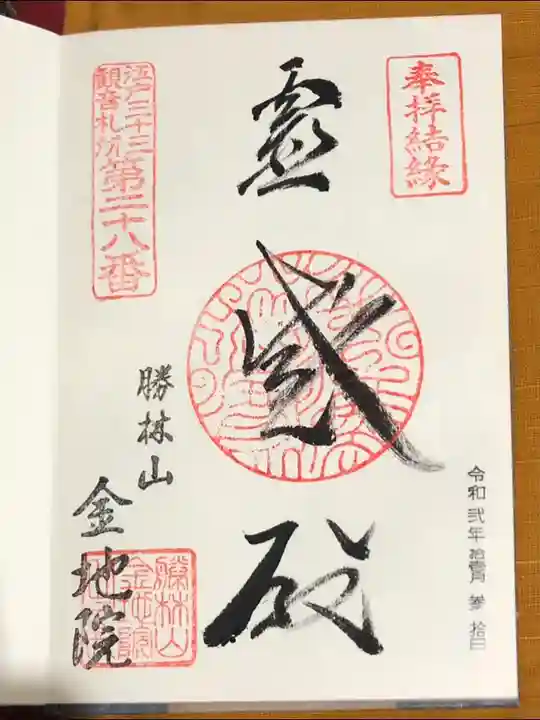 奉拝結縁
令和弐年拾壹月 参 拾日
霊感殿
勝林山
金地院
江戸三十三
観音札所
第二十八番
勝林山
金地院